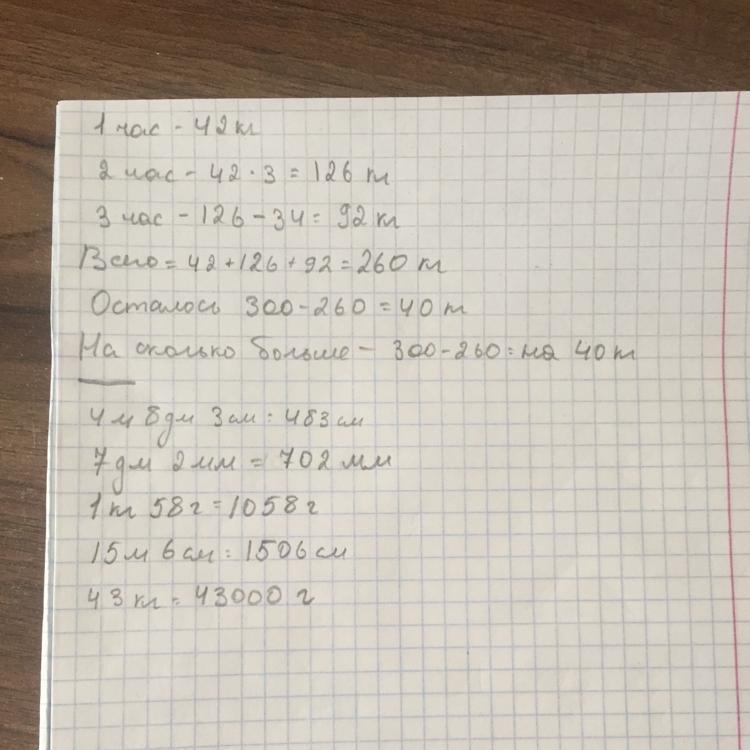 1 час - 42 кг
2 час - 42 · 3 = 126 кг
3 час - 126 - 34 = 92 кг
Всего = 42 + 126 + 92 = 260 кг
Осталось 300 - 260 = 40 кг
На сколько больше - 300 - 260 = на 40 кг
4 м 8 дм 3 см = 483 см
7 дм 2 мм = 702 мм
1 кг 58 г = 1058 г
15 м 6 см = 1506 см
43 кг = 43000 г